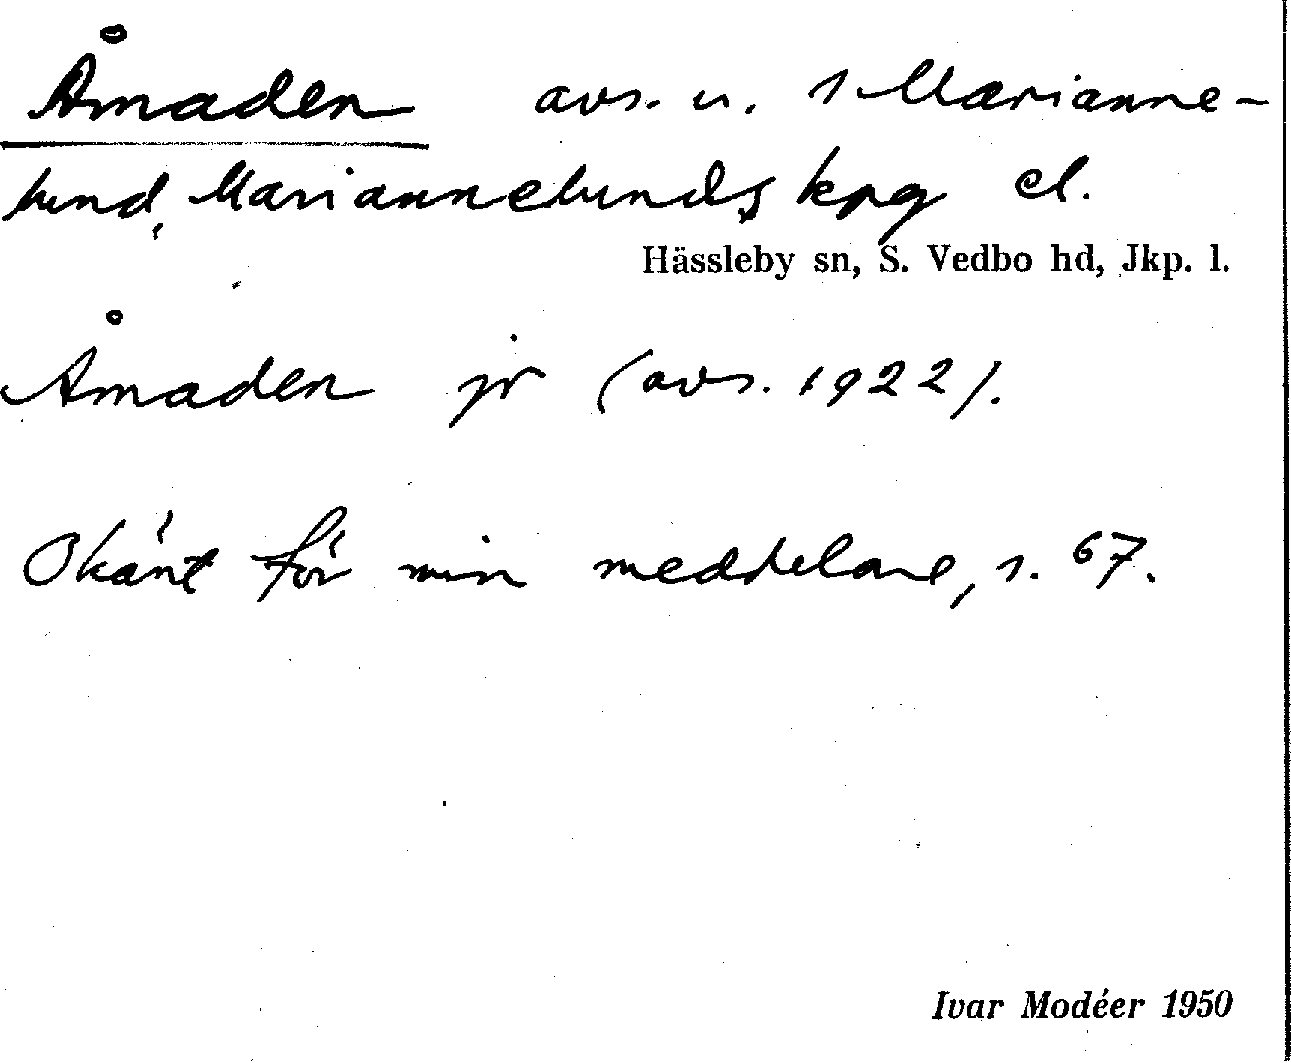 Åmaden avs. u. 1 Marianne-
lund, Mariannelunds kpg el.
Hässleby sn, S. Vedbo hd, Jkp. l.
Åmaden jr (avs. 1922).
Okänt för min meddelare, s. 67.
Ivar Modéer 1950